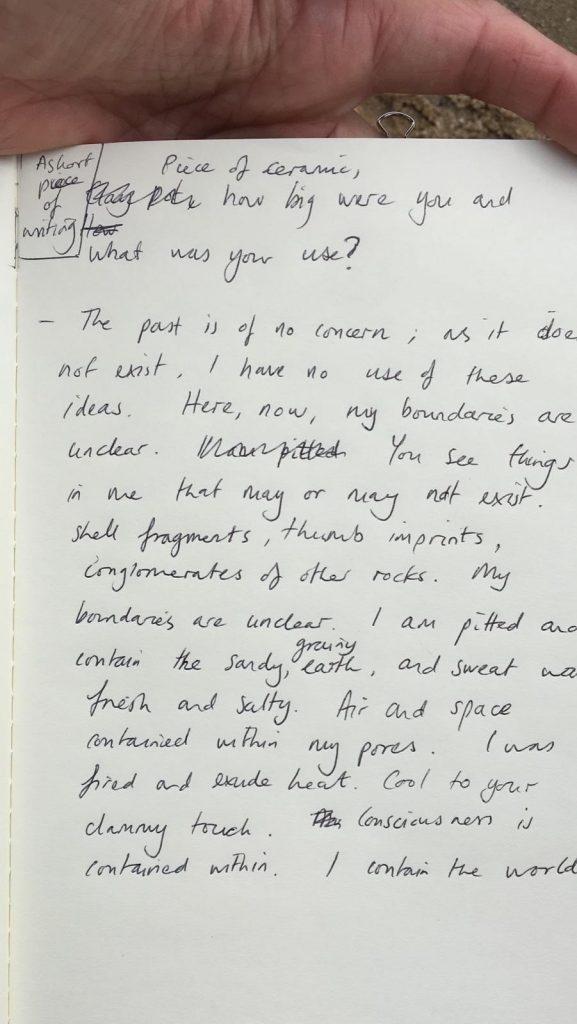 A short
piece
of
writing
Piece of ceramic,
how big were you and
what was your use?
- The past is of no concern; as it doe
not exist. I have no use of these
ideas. Here, now, my boundaries are
unclear. You see things
in me that may or may not exist.
shell fragments, thumb imprints,
conglomerates of other rocks. My
boundaries are unclear. I am pitted and
contain the sandy, grainy earth, and sweat wa
fresh and salty. Air and space
contained within my pores. I was
fired and exude heat. Cool to your
clammy touch. Consciousness is
contained within. I contain the world